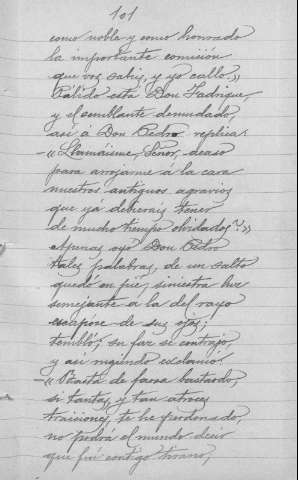 101
como noble y como honrado
la importante comisión
que vos sabeis, y yo callo.»
Pálido está Don Fadrique,
y el semblante demudado,
así á Don Pedro replica:
—«Llamáisme, Señor, acaso
para arrojarme á la cara
nuestros antiguos agravios
que yá debierais tener
de mucho tiempo olvidados?»
Apenas oyó Don Pedro
tales palabras, de un salto
quedó en pie; siniestra luz
semejante á la del rayo
escapóse de sus ojos;
tembló; su faz se contrajo,
y asi rugiendo exclamó:
—«Basta de farsa bastardo,
si tantas, y tan atroces
traiciones, te he perdonado,
no podrá el mundo decir
que fuí contigo tirano,